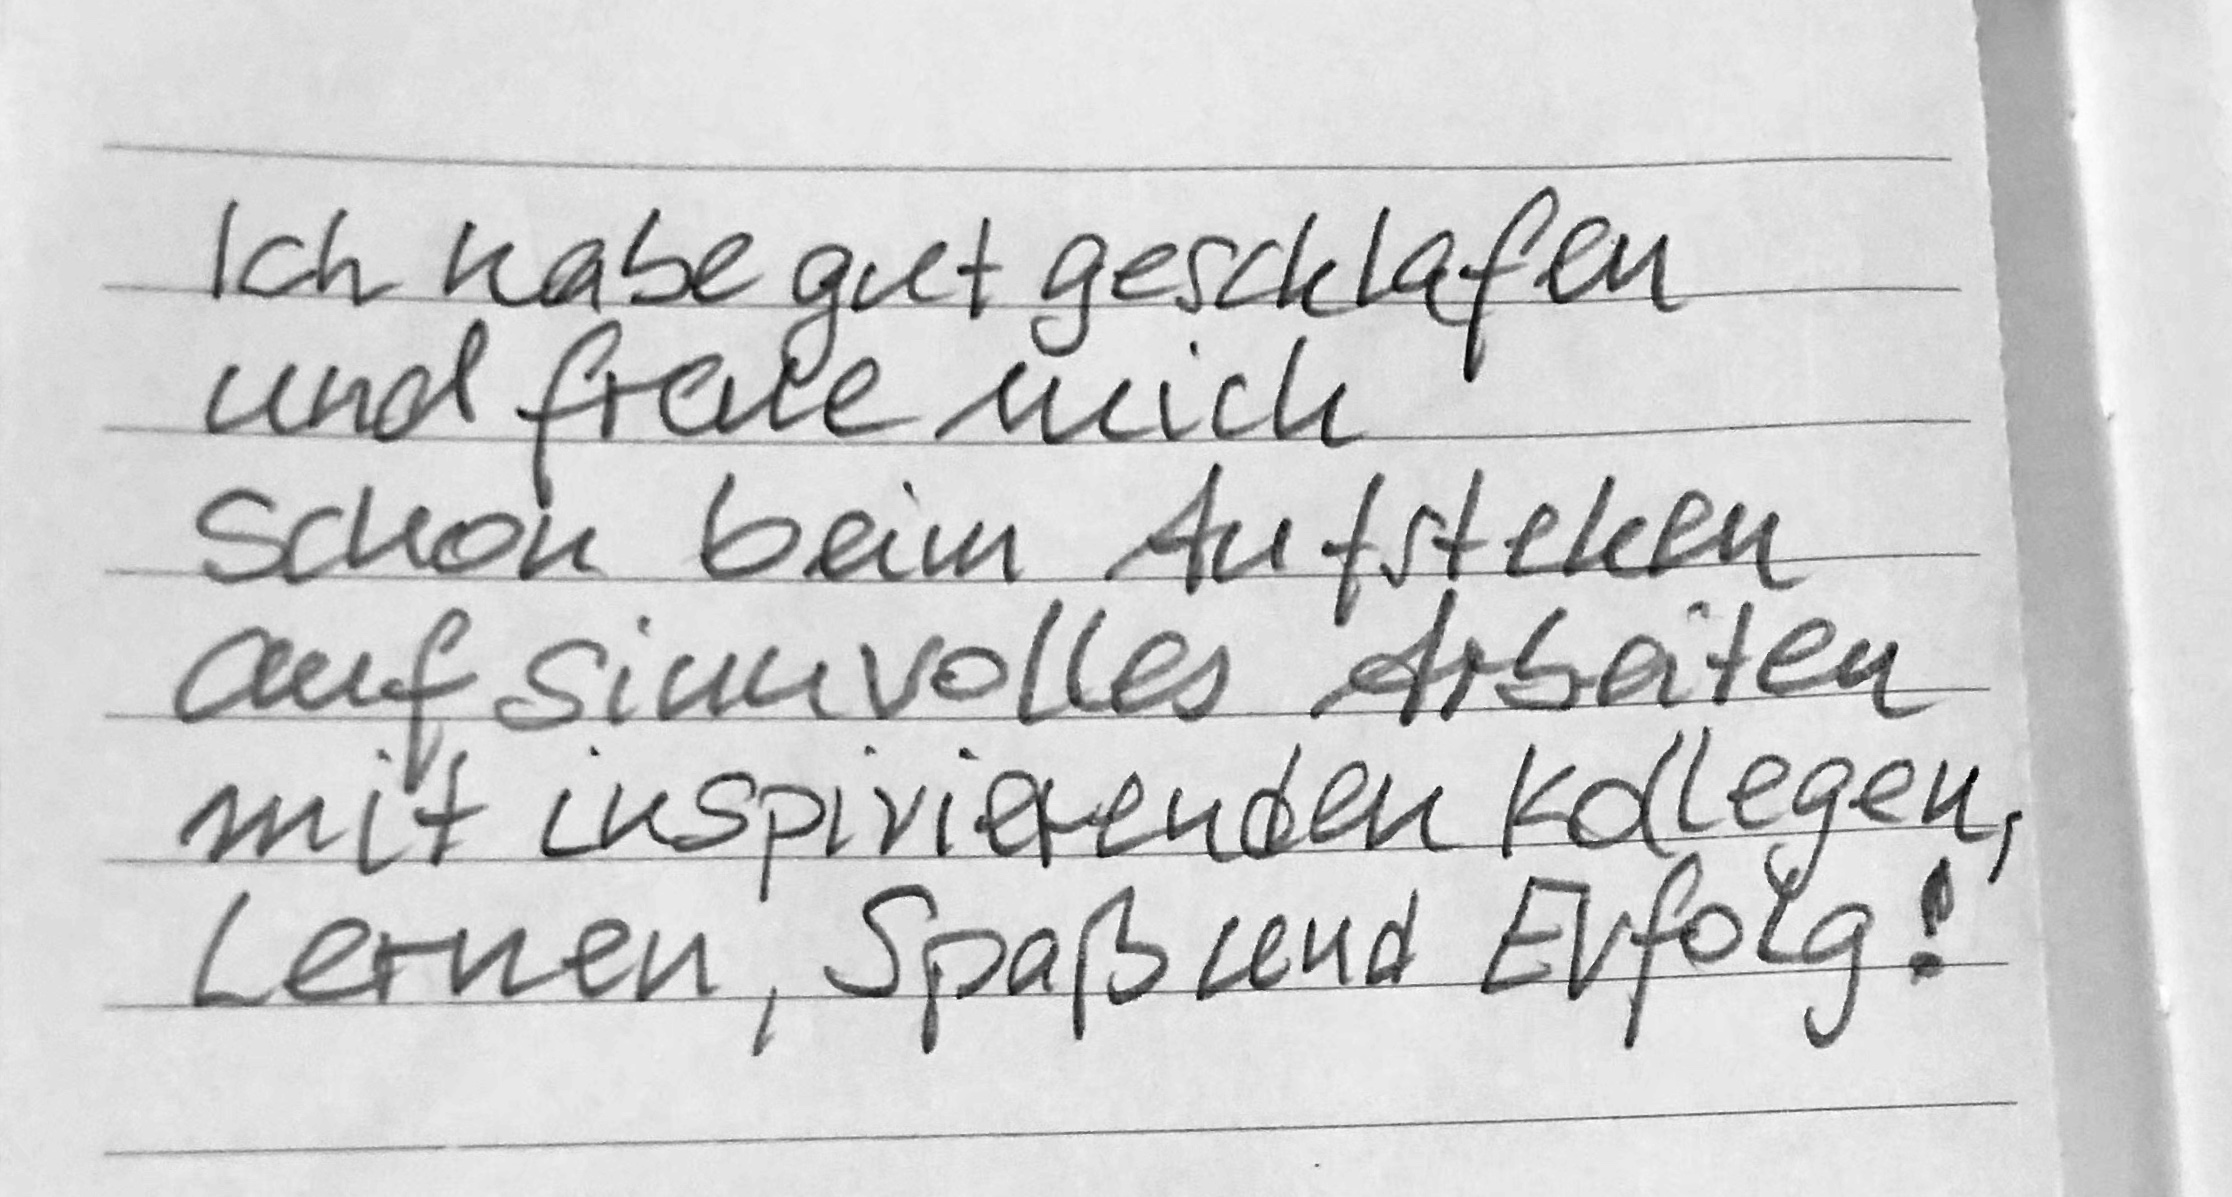 Ich habe gut geschlafen
und freue mich
schon beim Aufstehen
auf sinnvolles Arbeiten
mit inspirierenden Kollegen,
Lernen, Spaß und Erfolg!